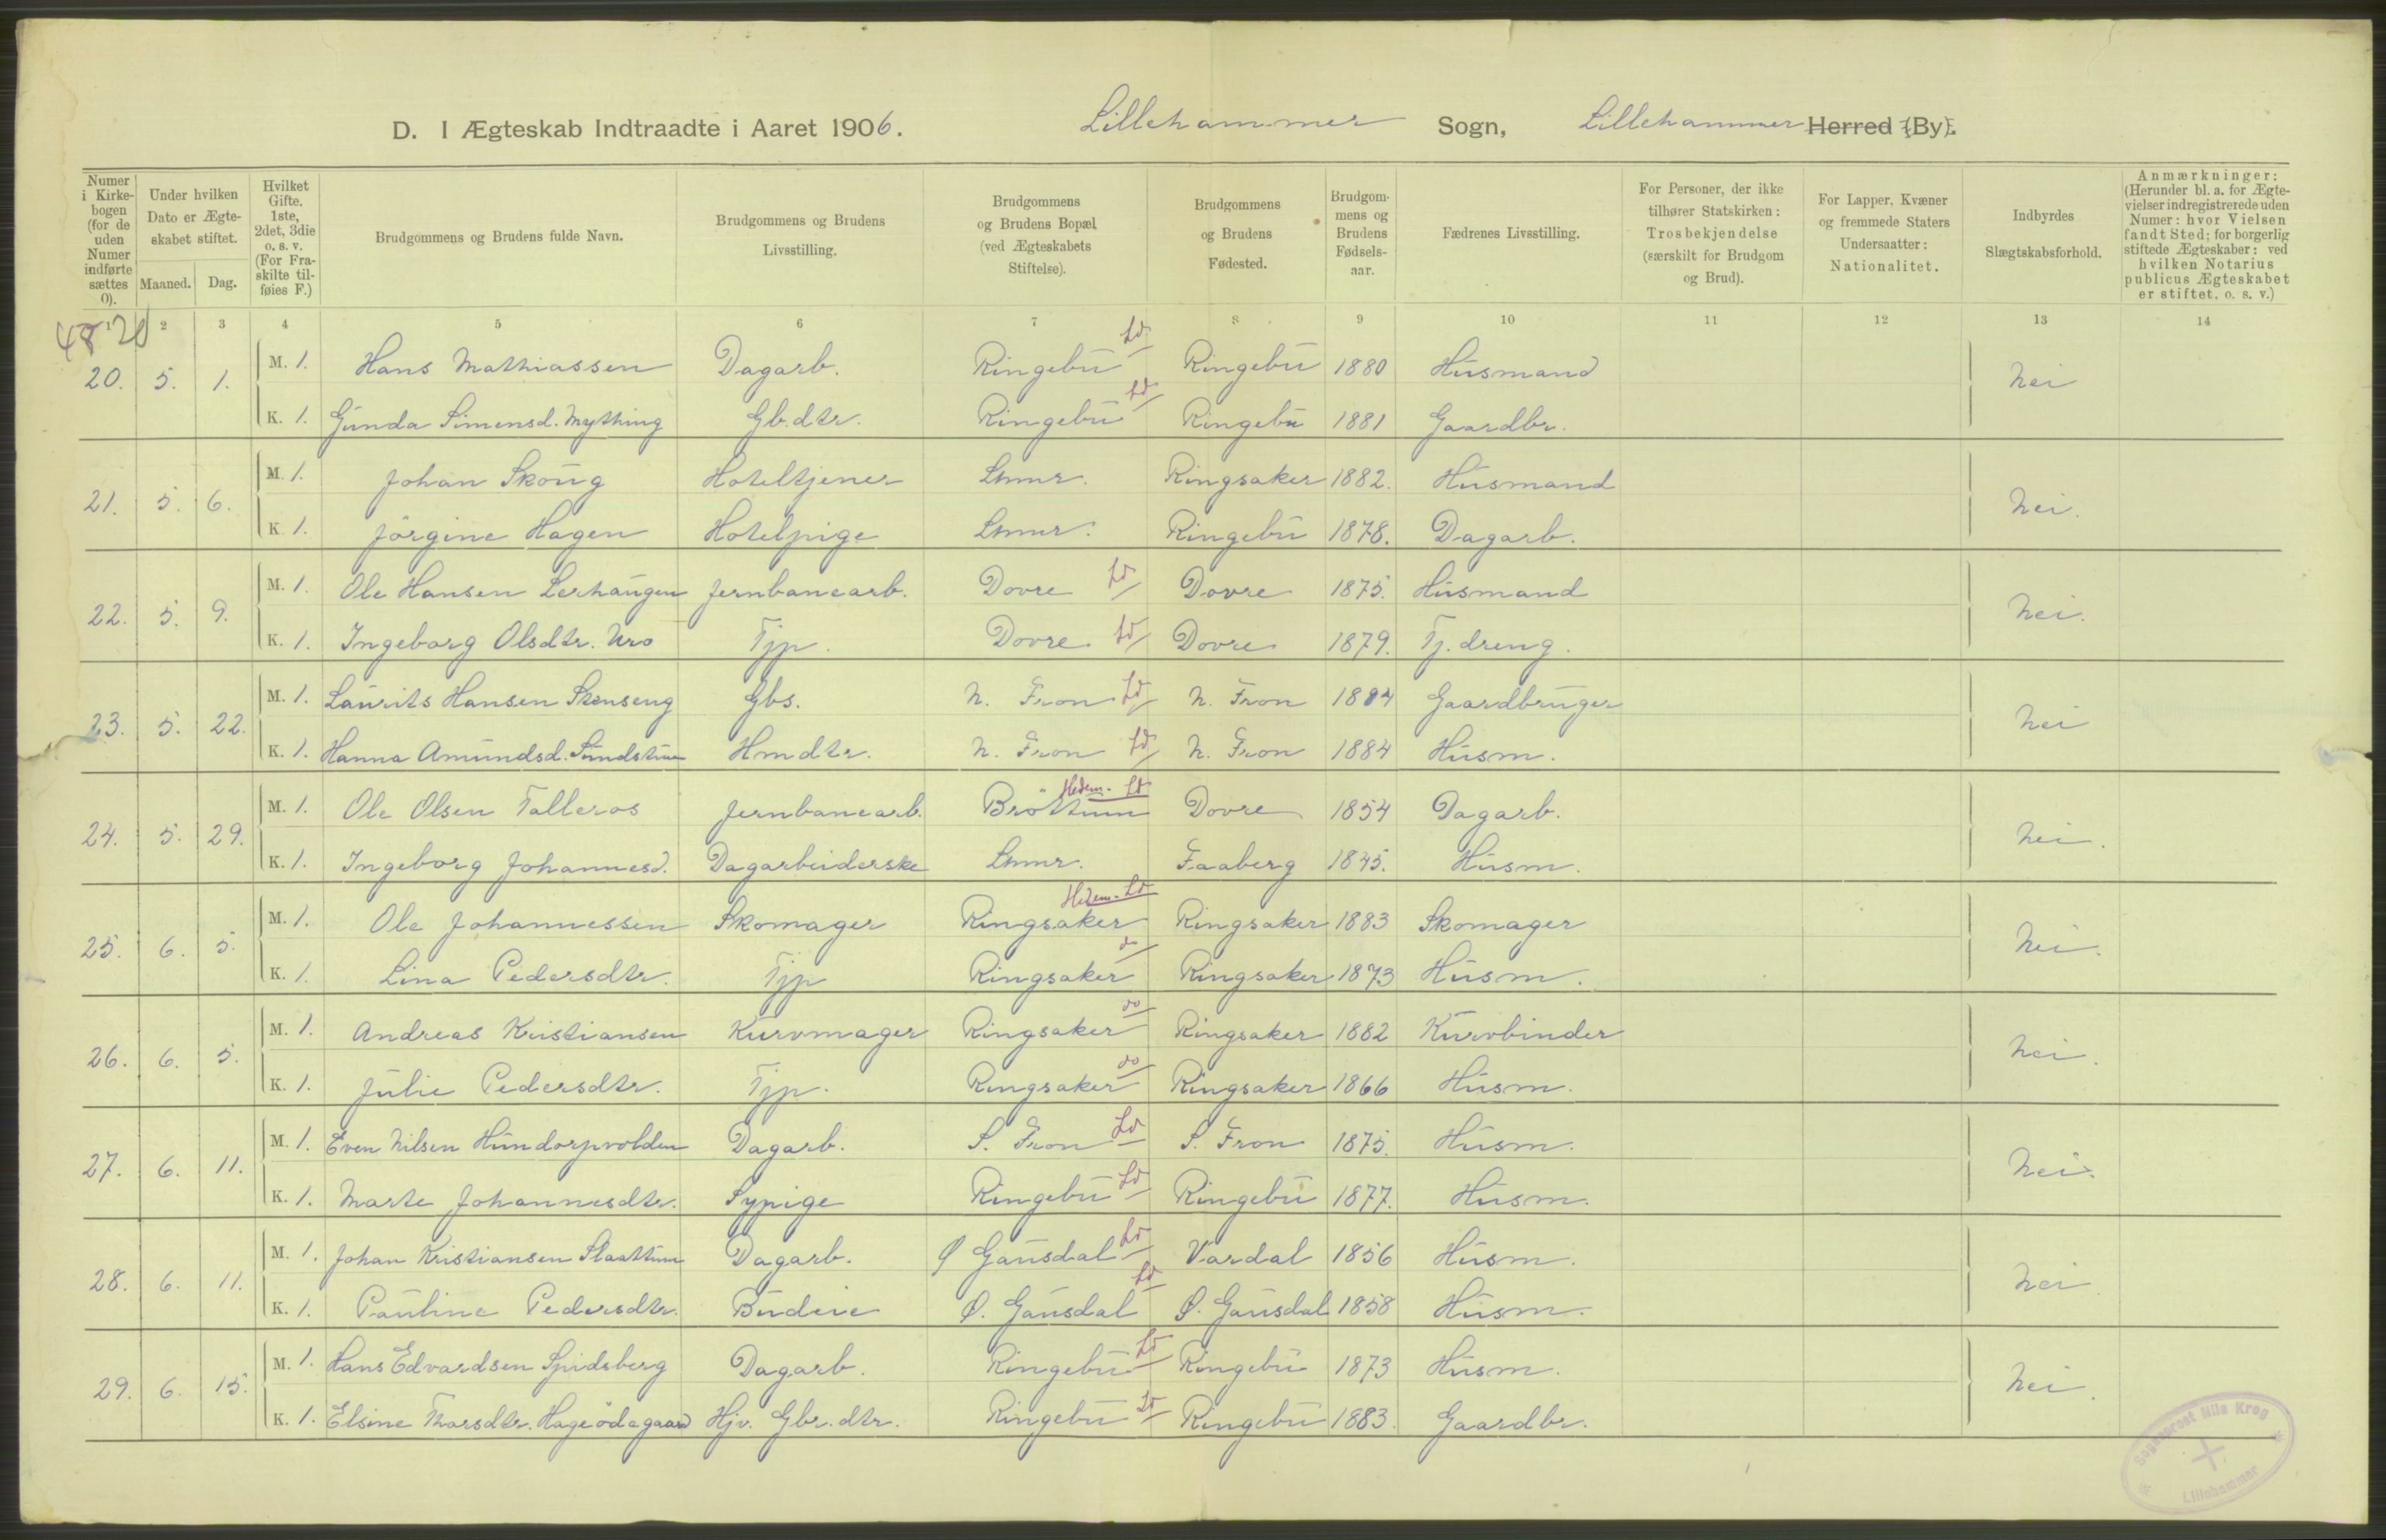 D. I Ægteskab Indtraadte i Aaret 1906. Lillehammer Sogn, Lillehammer Herred (By).
Numer i Kirkebogen (for de uden Numer indførte sættes 0).
Under hvilken Dato er Ægteskabet stiftet.
Maaned. Dag.
Hvilket Gifte. 1ste, 2det, 3die o. s. v. (For Fraskilte tilføies F.)
Brudgommens og Brudens fulde Navn.
Brudgommens og Brudens Livsstilling.
Brudgommens og Brudens Bopæl (ved Ægteskabets Stiftelse).
Brudgommens og Brudens Fødested.
Brudgommens og Brudens Fødselsaar.
Fædrenes Livsstilling.
For Personer, der ikke tilhører Statskirken: Trosbekjendelse (særskilt for Brudgom og Brud).
For Lapper, Kvæner og fremmede Staters Undersaatter: Nationalitet.
Indbyrdes Slægtskabsforhold.
Anmærkninger: (Herunder bl. a. for Ægtevielser indregistrerede uden Numer: hvor Vielsen fandt Sted; for borgerlig stiftede Ægteskaber: ved hvilken Notarius publicus Ægteskabet er stiftet. o. s. v.)
1 2 3 4 5 6 7 8 9 10 11 12 13 14
48 20
20. 5. 1. M. 1. Hans Mathiassen Dagarb. Ringebu Ld Ringebu 1880 Husmand nei
K. 1. Gunda Simensd. Mything Gb.dtr. Ringebu Ld Ringebu 1881 Gaardbr.
21. 5. 6. M. 1. Johan Skoug Hoteltjener Lhmr. Ringsaker 1882. Husmand nei.
K. 1. Jörgine Hagen Hotelpige Lhmr. Ringebu 1878. Dagarb.
22. 5. 9. M. 1. Ole Hansen Lerhaugen Jernbanearb. Dovre Ld Dovre 1875. Husmand nei.
K. 1. Ingeborg Olsdtr. Uro Tjp. Dovre Ld Dovre 1879. Tj. dreng.
23. 5. 22. M. 1. Laurits Hansen Stenseng Gbs. N. Fron Ld N. Fron 1884 Gaardbruger nei
K. 1. Hanna Amundsd. Sundstuen Hmdtr. N. Fron Ld N. Fron 1884 Husm.
24. 5. 29. M. 1. Ole Olsen Talleraas Jernbanearb. Bröttum Hedem. Ld Dovre 1854 Dagarb. nei.
K. 1. Ingeborg Johannesd. Dagarbeiderske Lhmr. Faaberg 1845. Husm.
25. 6. 5. M. 1. Ole Johannessen Skomager Ringsaker Hedem. Ld Ringsaker 1883 Skomager nei.
K. 1. Lina Pedersdtr. Tjp Ringsaker do Ringsaker 1873 Husm.
26. 6. 5. M. 1. Andreas Kristiansen Kurvmager Ringsaker do Ringsaker 1882 Kurvbinder nei.
K. 1. Julie Pedersdtr. Tjp. Ringsaker do Ringsaker 1866 Husm.
27. 6. 11. M. 1. Even Nilsen Hundorpvolden Dagarb. S. Fron Ld S. Fron 1875. Husm. nei.
K. 1. Marte Johannesdtr. Sypige Ringebu Ld Ringebu 1877. Husm.
28. 6. 11. M. 1. Johan Kristiansen Slaattum Dagarb. Ø Gausdal Ld Vardal 1856 Husm. nei
K. 1. Pauline Pedersdtr. Budeie Ø. Gausdal Ld Ø. Gausdal 1858 Husm.
29. 6. 15. M. 1. Hans Edvardsen Spidsberg Dagarb. Ringebu Ld Ringebu 1873 Husm. nei.
K. 1. Elsine Thorsdtr. Hageödegaard Hjv. Gbr.dtr. Ringebu Ld Ringebu 1883. Gaardbr.
Sogneprest Nils Krog
Lillehammer